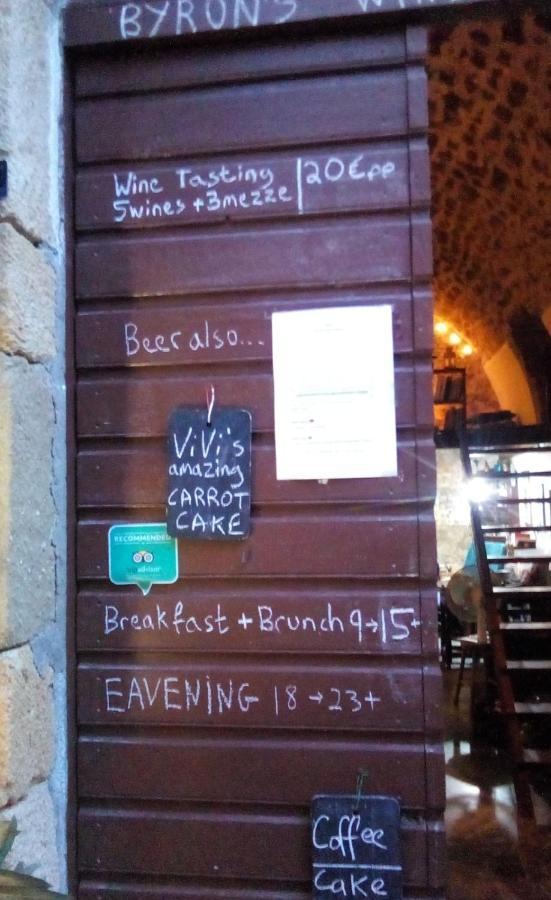 BYRON'S
Wine Tasting | 20€pp
5wines + 3mezze
Beer also...
ViVi's
amazing
CARROT
CAKE
RECOMMENDED
tripadvisor
Breakfast + Brunch 9→15+
EAVENING 18→23+
Coffee
Cake